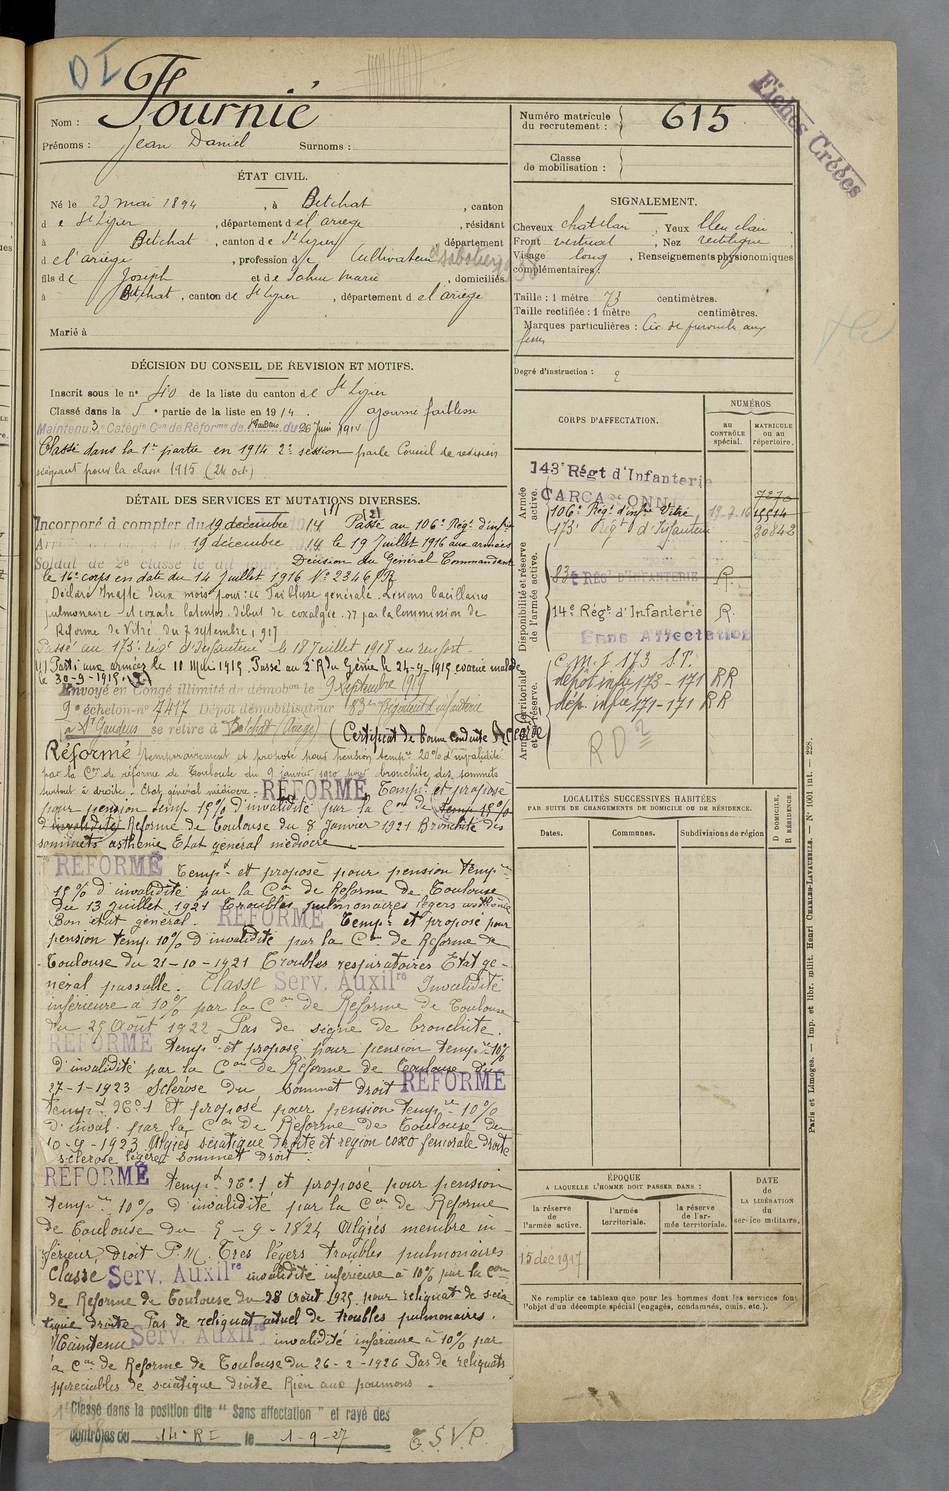 D I
Fiches Créées
Nom : Fournié
Prénoms : Jean Daniel Surnoms :
Numéro matricule du recrutement : 615
Classe de mobilisation :
ÉTAT CIVIL.
Né le 23 mai 1894, à Betchat, canton
de St Lyzier, département de l'ariège, résidant
à Betchat, canton de St Lyzier, département
de l'ariège, profession de Cultivateur
fils de Joseph et de Sahuc Marie, domiciliés
à Betchat, canton de St Lyzier, département de l'ariège
Marié à
SIGNALEMENT.
Cheveux chat clair, Yeux bleu clair
Front vertical, Nez rectiligne
Visage long, Renseignements physionomiques
complémentaires :
Taille : 1 mètre 73 centimètres.
Taille rectifiée : 1 mètre centimètres.
Marques particulières : Cic. de furoncle aux
fesses
Degré d'instruction : 2
DÉCISION DU CONSEIL DE REVISION ET MOTIFS.
Inscrit sous le n° 40 de la liste du canton de St Lyzier
Classé dans la 5e partie de la liste en 1914. ajourné faiblesse
Maintenu 3e Catégie Con de Réforme de du 26 Juin 1914
Classé dans la 1re partie en 1914 2e session par le Conseil de revision
siégeant pour la classe 1915 (24 oct)
DÉTAIL DES SERVICES ET MUTATIONS DIVERSES.
Incorporé à compter du 19 décembre 1914 Passé au 106e Rég. d'infie
19 décembre 1914 le 19 Juillet 1916 aux armées
Soldat de 2e classe le dit jour. Décision du Général Commandant
le 16e corps en date du 14 Juillet 1916 No 2346 PR
Déclaré Inapte deux mois pour : Faiblesse générale. Lésions bacillaires
pulmonaire et coxale latentes. début de coxalgie par la Commission de
Réforme de Vitré du 7 septembre 1917
Passé au 173e régt d'Infanterie le 18 Juillet 1918 en renfort.
(1) Parti aux armées le 11 Mai 1915. Passé au 2e R du Génie le 24-9-1915 évacué malade
le 30-9-1915. (2)
Envoyé en Congé illimité de démobon le 9 septembre 1919
9e échelon no 7417 Dépôt démobilisateur 83e Régiment d'infanterie
à St Gaudens se retire à Betchat (Ariège) (Certificat de Bonne Conduite Accordé)
Réformé temporairement et proposé pour pension tempre 20% d'invalidité
par la Con de réforme de Toulouse du 9 janvier 1920 pour bronchite des sommets
surtout à droite. Etat général médiocre. RÉFORMÉ Tempt et proposé
pour pension temp. 15% d'invalidité par la Con de temp 15%
d'invalidité Réforme de Toulouse du 8 Janvier 1921 Bronchite des
sommets asthénie Etat général médiocre
RÉFORMÉ Tempt et proposé pour pension tempre
15% d'invalidité par la Con de Réforme de Toulouse
du 13 Juillet 1921 Troubles pulmonaires légers asthénie
Bon état général. RÉFORMÉ Tempt et proposé pour
pension temp. 10% d'invalidité par la Con de Réforme de
Toulouse du 21-10-1921 Troubles respiratoires Etat gé-
néral passable. Classé Serv. Auxilre Invalidité
inférieure à 10% par la Con de Réforme de Toulouse
du 29 Août 1922 Pas de signe de bronchite.
RÉFORMÉ tempt et proposé pour pension tempre 10%
d'invalidité par la Con de Réforme de Toulouse du
27-1-1923 Sclérose du sommet droit RÉFORMÉ
tempt et proposé pour pension tempre 10%
d'inval. par la Con de Réforme de Toulouse du
10-9-1923 Algies sciatique droite et région coxo fémorale droite
sclérose légère sommet droit.
RÉFORMÉ tempt et proposé pour pension
tempre 10% d'invalidité par la Con de Réforme
de Toulouse du 5-9-1824 Algies membre in-
férieur droit P.M. Très légers troubles pulmonaires
Classé Serv. Auxilre invalidité inférieure à 10% par la Con
de Réforme de Toulouse du 28 Aout 1925 pour reliquat de scia-
tique droite Pas de reliquat actuel de troubles pulmonaires.
Maintenu Serv. Auxilre invalidité inférieure à 10% par
la Con de Réforme de Toulouse du 26-2-1926 Pas de reliquats
appréciables de sciatique droite Rien aux poumons.
Classé dans la position dite "Sans affectation" et rayé des
contrôles du 14e RI le 1-9-27
T.S.V.P.
CORPS D'AFFECTATION.
NUMÉROS
AU CONTRÔLE spécial.
MATRICULE OU AU répertoire.
Armée active.
143e Régt d'Infanterie
CARCASSONNE 7270
106e Régt d'infie Vitré 19.7.16 15514
173e Régt d'Infanterie 20842
Disponibilité et réserve de l'armée active.
83e RÉGt D'INFANTERIE R.
14e Régt d'Infanterie R.
Sans Affectation
Armée territoriale et sa réserve.
C.M.I. 173 S.P.
dépôt infie 173-171 RR
dép. infie 171-171 RR
RD2
LOCALITÉS SUCCESSIVES HABITÉES
PAR SUITE DE CHANGEMENTS DE DOMICILE OU DE RÉSIDENCE.
D DOMICILE. R RÉSIDENCE.
Dates. Communes. Subdivisions de région
ÉPOQUE
A LAQUELLE L'HOMME DOIT PASSER DANS :
la réserve de l'armée active.
l'armée territoriale.
la réserve de l'armée territoriale.
DATE de LA LIBÉRATION du service militaire.
15 dec 1917
Ne remplir ce tableau que pour les hommes dont les services font
l'objet d'un décompte spécial (engagés, condamnés, omis, etc.).
Paris et Limoges. — Imp. et libr. milit. Henri CHARLES-LAVAUZELLE. — N° 1001 int. — 228.